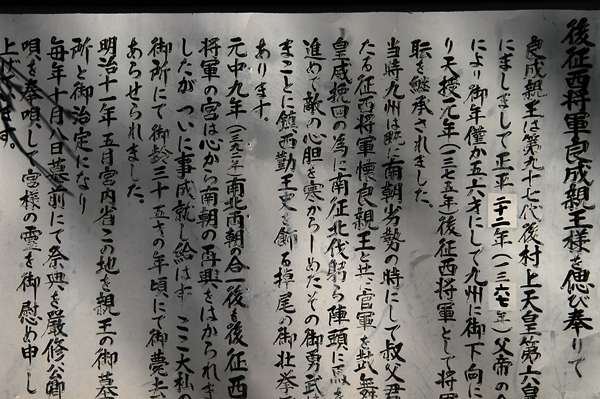 後征西将軍良成親王様を偲び奉りて
良成親王は第九十七代後村上天皇第六皇
にましまして正平二十二年(一三六七年)父帝の
により御年僅か五六才にして九州に御下向に
り天授元年(一三七五年)後征西将軍として将軍
職を継承されました。
当時九州は既に南朝劣勢の時にして叔父君
たる征西将軍懐良親王と共に官軍を鼓舞
皇威挽回の為に南征北伐躬ら陣頭に馬を
進めて敵の心胆を寒からしめたその御勇武
まことに鎮西勤王史を飾る掉尾の御壮挙
あります。
元中九年(一三九二年)南北両朝の合一後も後征西
将軍の宮は心から南朝の再興をはかられま
したが ついに事成就し給はず ここ大杣の
御所にて御齢三十五才の年頃にて御薨去
あらせられました。
明治十一年五月宮内省この地を親王の御墓
所と御治定になり
毎年十月八日墓前にて祭典を厳修公卿
唄を奉唱して宮様の霊を御慰め申し
上げています。